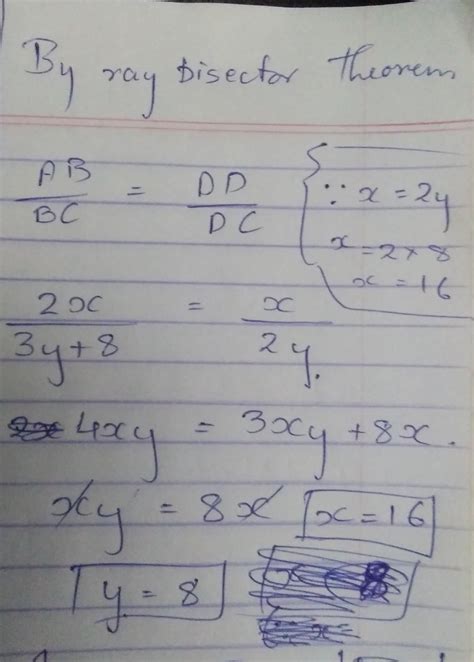 By ray bisector theorem
AB/BC = DD/DC
∵ x = 2y
x = 2 × 8
x = 16
2x/3y+8 = x/2y.
4xy = 3xy + 8x.
xy = 8x
x = 16
y = 8